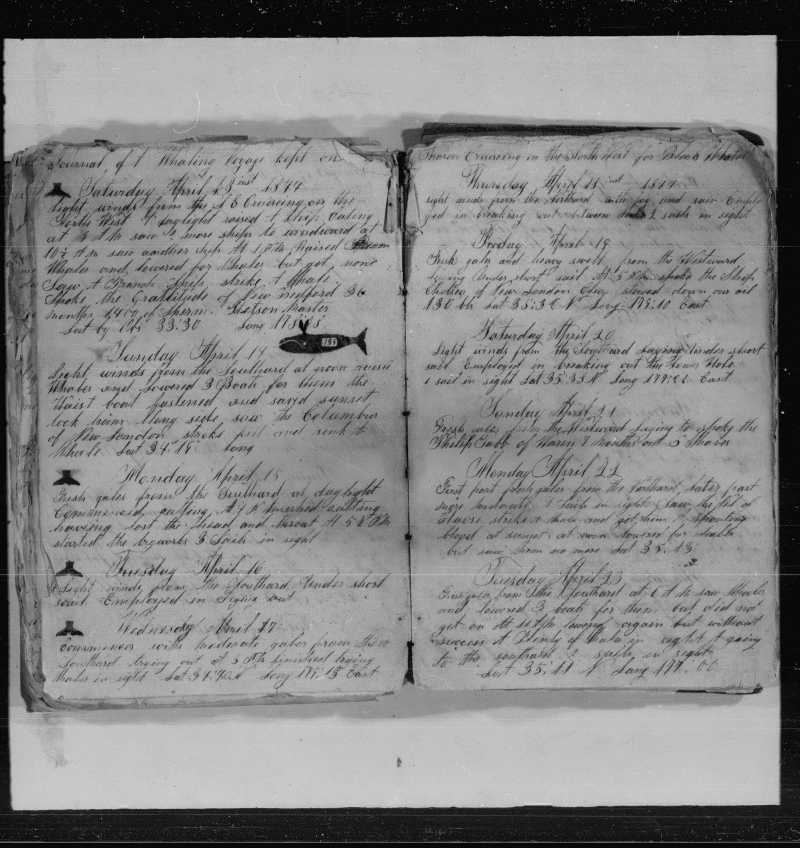 Journal of A Whaling Voyage kept on
Saturday April 13 inst 1844
Light winds from the S E Cruising on the
North West at daylight raised a ship Cutting
at 7 A M saw 2 more ships to windward at
10½ A M saw another ship at 1 P M Raised
Whales and lowered for Whales but got none
Saw A French Ship strike A Whale
Spoke the Gratitude of New Bedford 36
months 1400 of Sperm Stetson Master
Lat by Obs 33:30 Long
Sunday April 14
Light winds from the Southard at
Whales and lowered 3 Boats for them the
Waist boat fastened and saved sunset
took him along side, saw the Columbus
of New London strike kill and sink A
Whale Lat 34.14 Long
Monday April 15
Fresh gales from the Southard at daylight
Commenced cutting, At 4 P M finished cutting
having lost the head and throat At 5 P M
started the tryworks 3 Sails in sight
Tuesday April 16
Light winds from the Southard, Under short
sail Employed in Trying out
Wednesday April 17
commences with moderate gales from the
Southard trying out at 5 P M finished trying
Whales in sight Lat Long East
Sharon Cruising in the North West for Black Whales
Thursday April 18 inst 1844
Light winds from the Northard with fog and rain Employ
yed in breaking out between decks 2 sails in sight
Friday April 19
Fresh gales and heavy swell from the Westward
Laying Under short sail At 5 P M spoke the Ship
Chelsea of New London Clay stowed down our oil
130 bbls Lat 35:32 N Long 179:10 East
Saturday April 20
Light winds from the Southard Laying Under short
sail Employed in breaking out the Lower Hole
1 sail in sight Lat 35:33 N Long 179:22 East
Sunday April 21
Fresh gales from the Westward Laying to spoke the
of Havre 7 Months out 5 Whales
Monday April 22
First part fresh gales from the Northard, Later part
more moderate sails in sight saw the
Havre strike 2 Whales and got them to Spouting
blood at sunset at noon lowered for Whales
but saw them no more Lat 35.13
Tuesday April 23
Fresh gales from the Southard at 6 A M saw Whales
and lowered 3 boats for them but did not
get on At 10 A M lowered again but without
success A Plenty of Whales in sight A going
to the southard 2 sails in sight
Lat 35:11 N Long 177.00